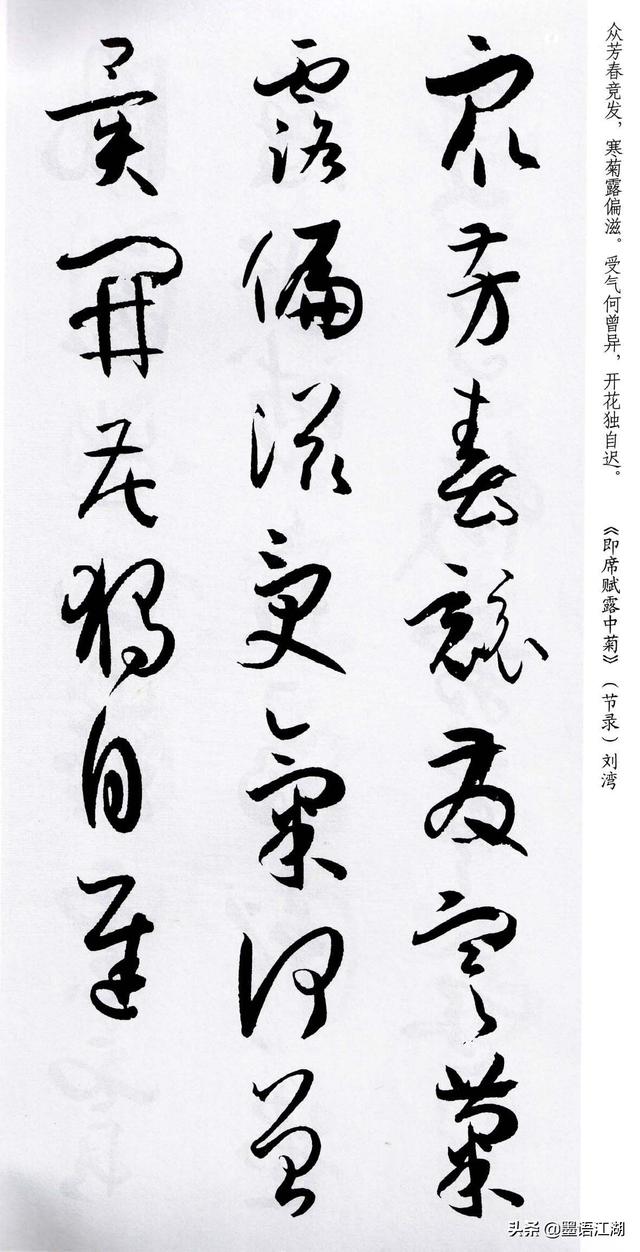 众芳春竞发，寒菊露偏滋。受气何曾异，开花独自迟。
《即席赋露中菊》（节录）刘湾
眾芳春競發寒菊
露偏滋受氣何曾
異開花獨自遲
头条 @墨语江湖